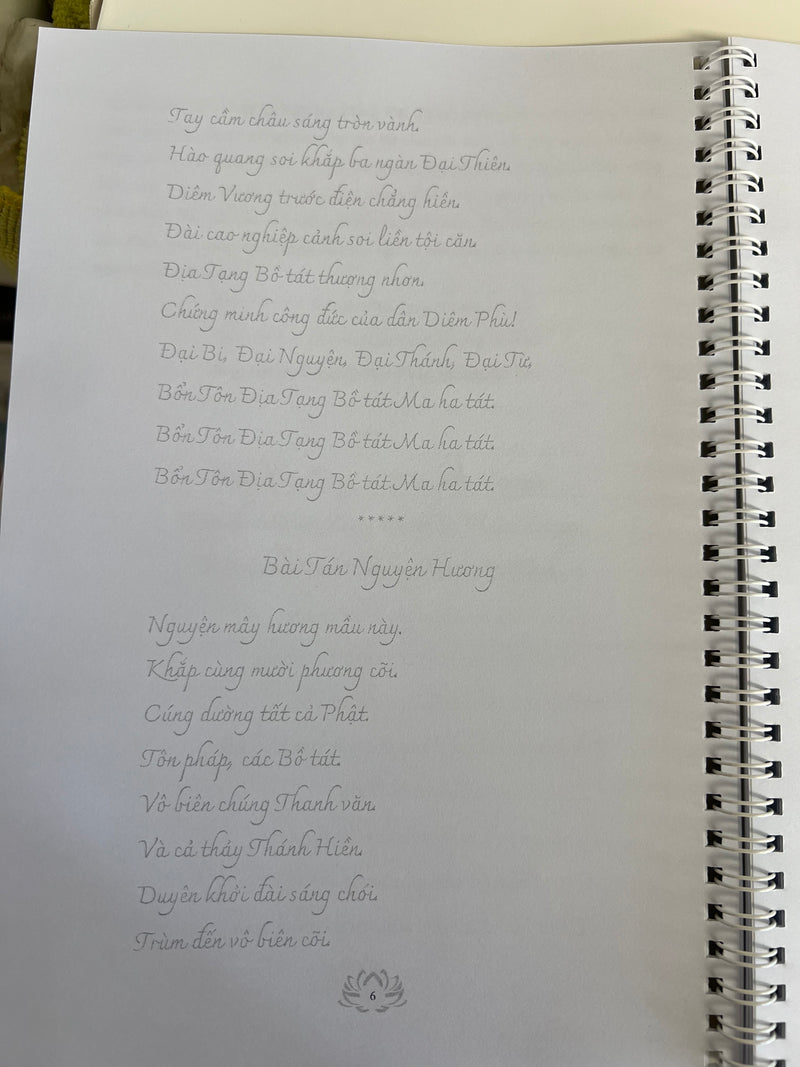 Tay cầm châu sáng tròn vành.
Hào quang soi khắp ba ngàn Đại Thiên.
Diêm Vương trước điện chẳng hiền.
Đài cao nghiệp cảnh soi liền tội căn.
Địa Tạng Bồ tát thượng nhơn.
Chứng minh công đức của dân Diêm Phù!
Đại Bi, Đại Nguyện, Đại Thánh, Đại Từ,
Bổn Tôn Địa Tạng Bồ tát Ma ha tát.
Bổn Tôn Địa Tạng Bồ tát Ma ha tát.
Bổn Tôn Địa Tạng Bồ tát Ma ha tát.
*****
Bài Tán Nguyện Hương
Nguyện mây hương mầu này.
Khắp cùng mười phương cõi.
Cúng dường tất cả Phật.
Tôn pháp, các Bồ tát.
Vô biên chúng Thanh văn.
Và cả thảy Thánh Hiền.
Duyên khởi đài sáng chói.
Trùm đến vô biên cõi.
6